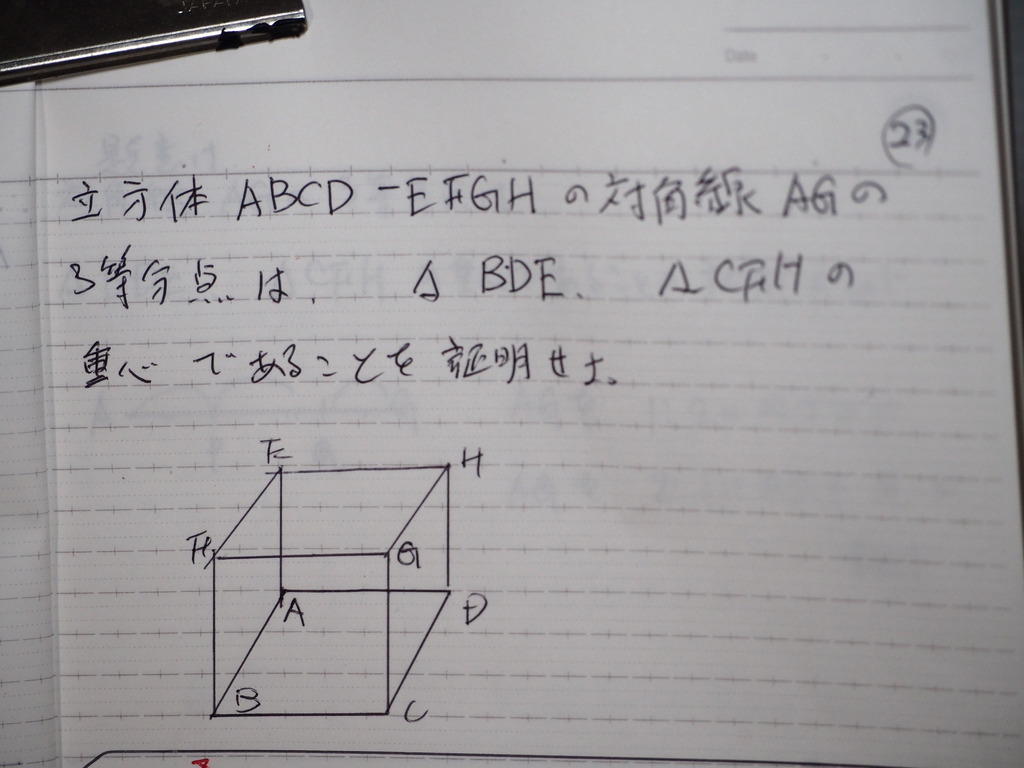 JAPAN
Date
23
立方体 ABCD-EFGHの対角線 AGの
3等分点は、 △BDE、 △CFHの
重心であることを証明せよ。
E H
F G
A D
B C